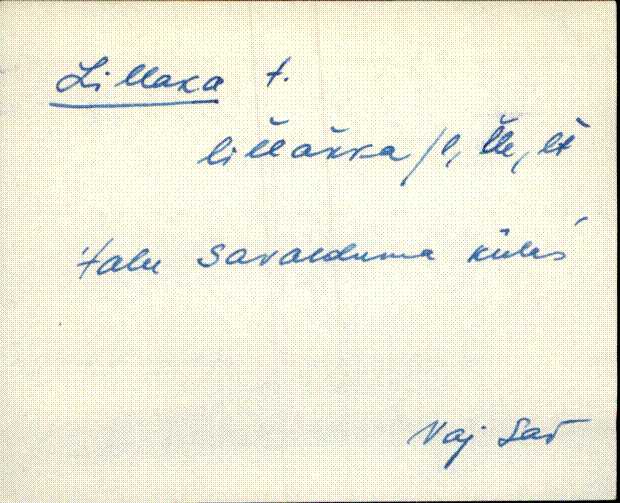 Lillaka t.
lil̆l̆ăkka /l, l̆l̆e, lt
talu Savalduma külas
Vaj Sav